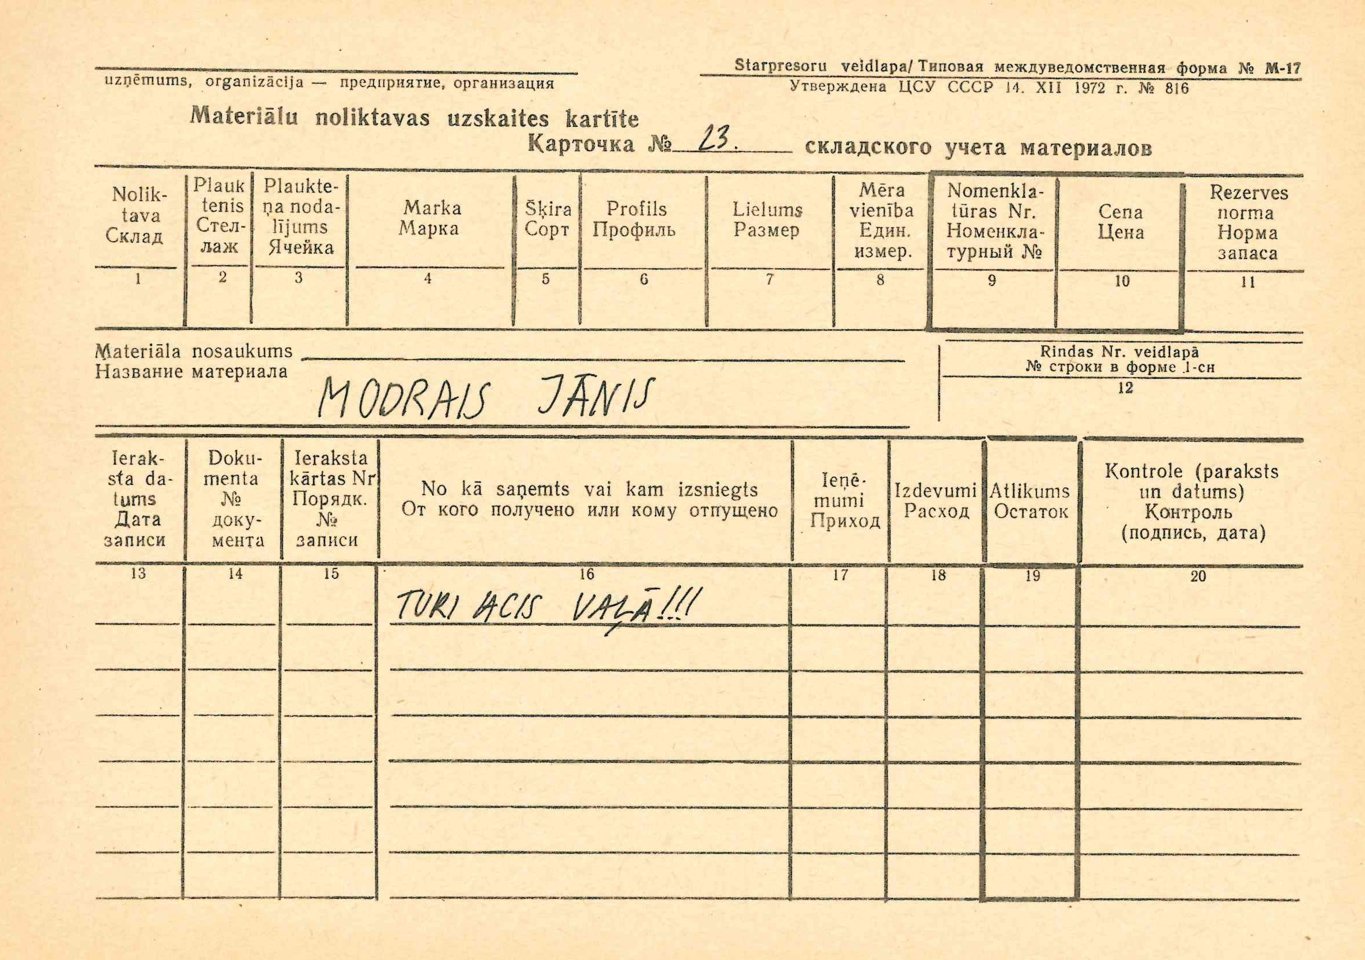 Starpresoru veidlapa/Типовая междуведомственная форма № М-17
uzņēmums, organizācija — предприятие, организация
Утверждена ЦСУ СССР 14. XII 1972 г. № 816
Materiālu noliktavas uzskaites kartīte
Карточка № 23. складского учета материалов
Nolik-
tava
Склад
Plauk
tenis
Стел-
лаж
Plaukte-
ņa noda-
lījums
Ячейка
Marka
Марка
Šķira
Сорт
Profils
Профиль
Lielums
Размер
Mēra
vienība
Един.
измер.
Nomenkla-
tūras Nr.
Номенкла-
турный №
Cena
Цена
Rezerves
norma
Норма
запаса
1 2 3 4 5 6 7 8 9 10 11
Materiāla nosaukums
Название материала
MODRAIS JĀNIS
Rindas Nr. veidlapā
№ строки в форме 1-сн
12
Ierak-
sta da-
tums
Дата
записи
Doku-
menta
№
доку-
мента
Ieraksta
kārtas Nr
Порядк.
№
записи
No kā saņemts vai kam izsniegts
От кого получено или кому отпущено
Ieņē-
mumi
Приход
Izdevumi
Расход
Atlikums
Остаток
Kontrole (paraksts
un datums)
Контроль
(подпись, дата)
13 14 15 16 17 18 19 20
TURI ACIS VAĻĀ!!!